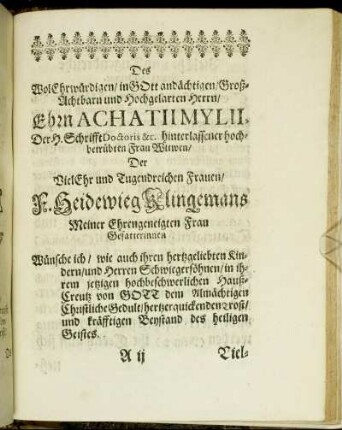 Des
WolEhrwürdigen/ in GOtt andächtigen/ Groß-
Achtbarn und Hochgelarten Herrn/
Ehrn ACHATII MYLII,
Der H. Schrifft Doctoris &c. hinterlassener hoch-
betrübten Frau Witwen/
Der
VielEhr und Tugendreichen Frauen/
F. Heidewieg Klingemans
Meiner Ehrengeneigten Frau
Gefatterinnen
Wünsche ich/ wie auch ihren hertzgeliebten Kin-
dern/ und Herren Schwiegersöhnen/ in ih-
rem jetzigen hochbeschwerlichen Hauß-
Creutz von GOTT dem Almächtigen
Christliche Gedult/ hertzerquickenden Trost/
und kräfftigen Beystand des heiligen
Geistes.
A ij Viel-